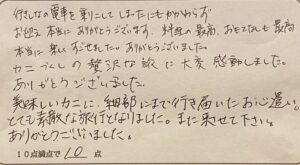 行きしなの電車を乗りこしてしまったにもかかわらず
お迎え本当にありがとうございます。料理の最高、おもてなしも最高
本当に楽しくすごせました。ありがとうございました。
カニづくしの贅沢な旅に大変感動しました。
ありがとうございました。
美味しいカニに、細部にまで行き届いたお心遣い。
とても素敵な旅行となりました。また来させて下さい。
ありがとうございました。
10点満点で 10 点